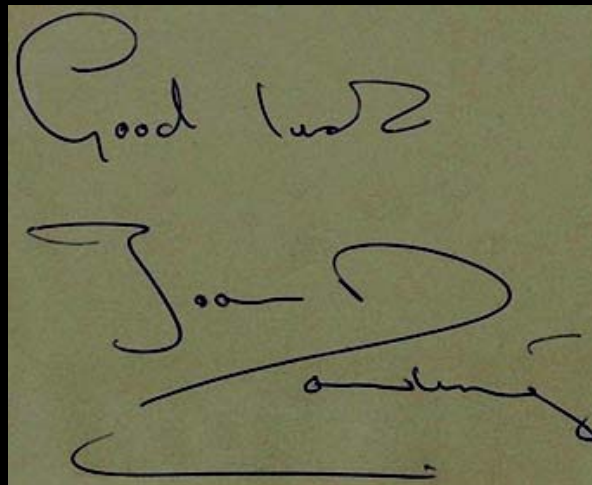 Good luck
Joan